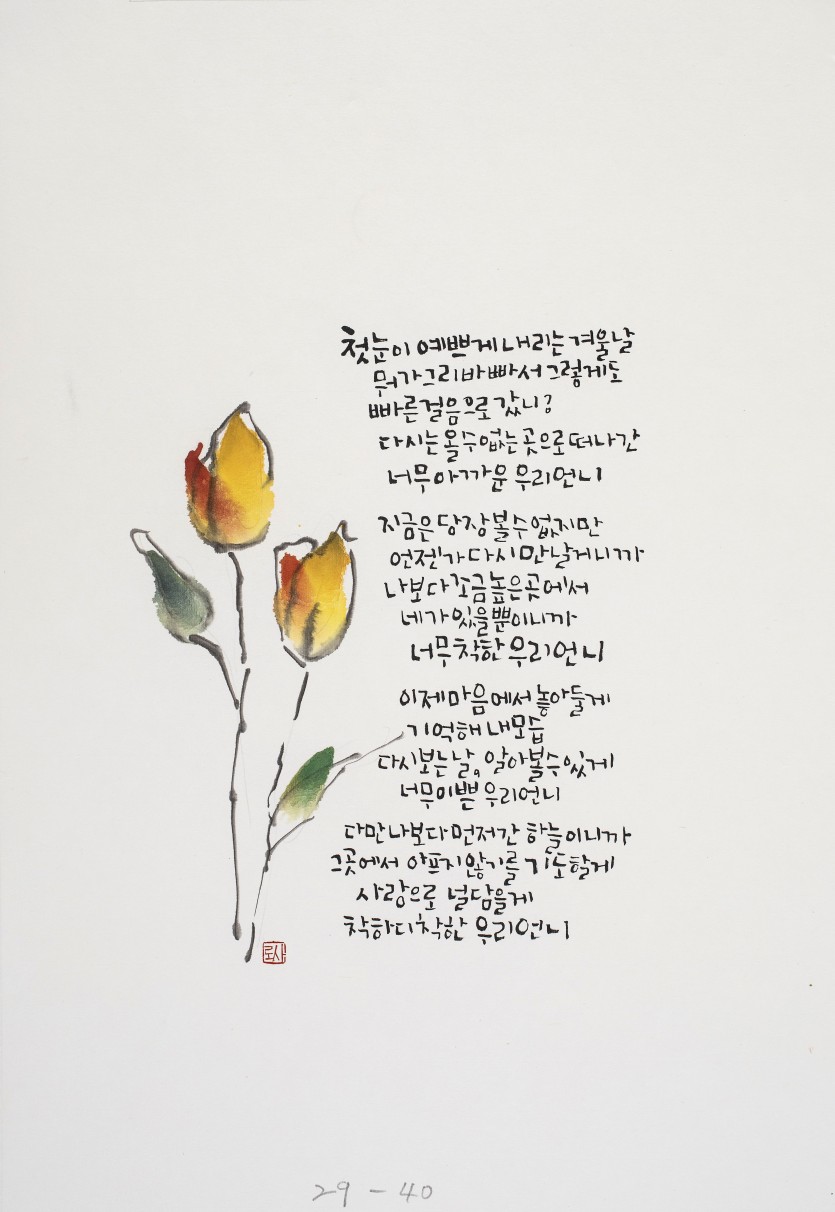 첫눈이 예쁘게 내리는 겨울날
뭐가 그리 바빠서 그렇게도
빠른 걸음으로 갔니?
다시는 올 수 없는 곳으로 떠나간
너무 아까운 우리언니
지금은 당장 볼 수 없지만
언젠가 다시 만날거니까
나보다 조금 높은 곳에서
네가 있을 뿐이니까
너무 착한 우리언니
이제 마음에서 놓아둘게
기억해 내모습
다시 보는 날, 알아볼 수 있게
너무 이쁜 우리언니
다만 나보다 먼저 간 하늘이니까
그곳에서 아프지 않기를 기도할게
사랑으로 널 담을게
착하디 착한 우리언니
로사
29 - 40